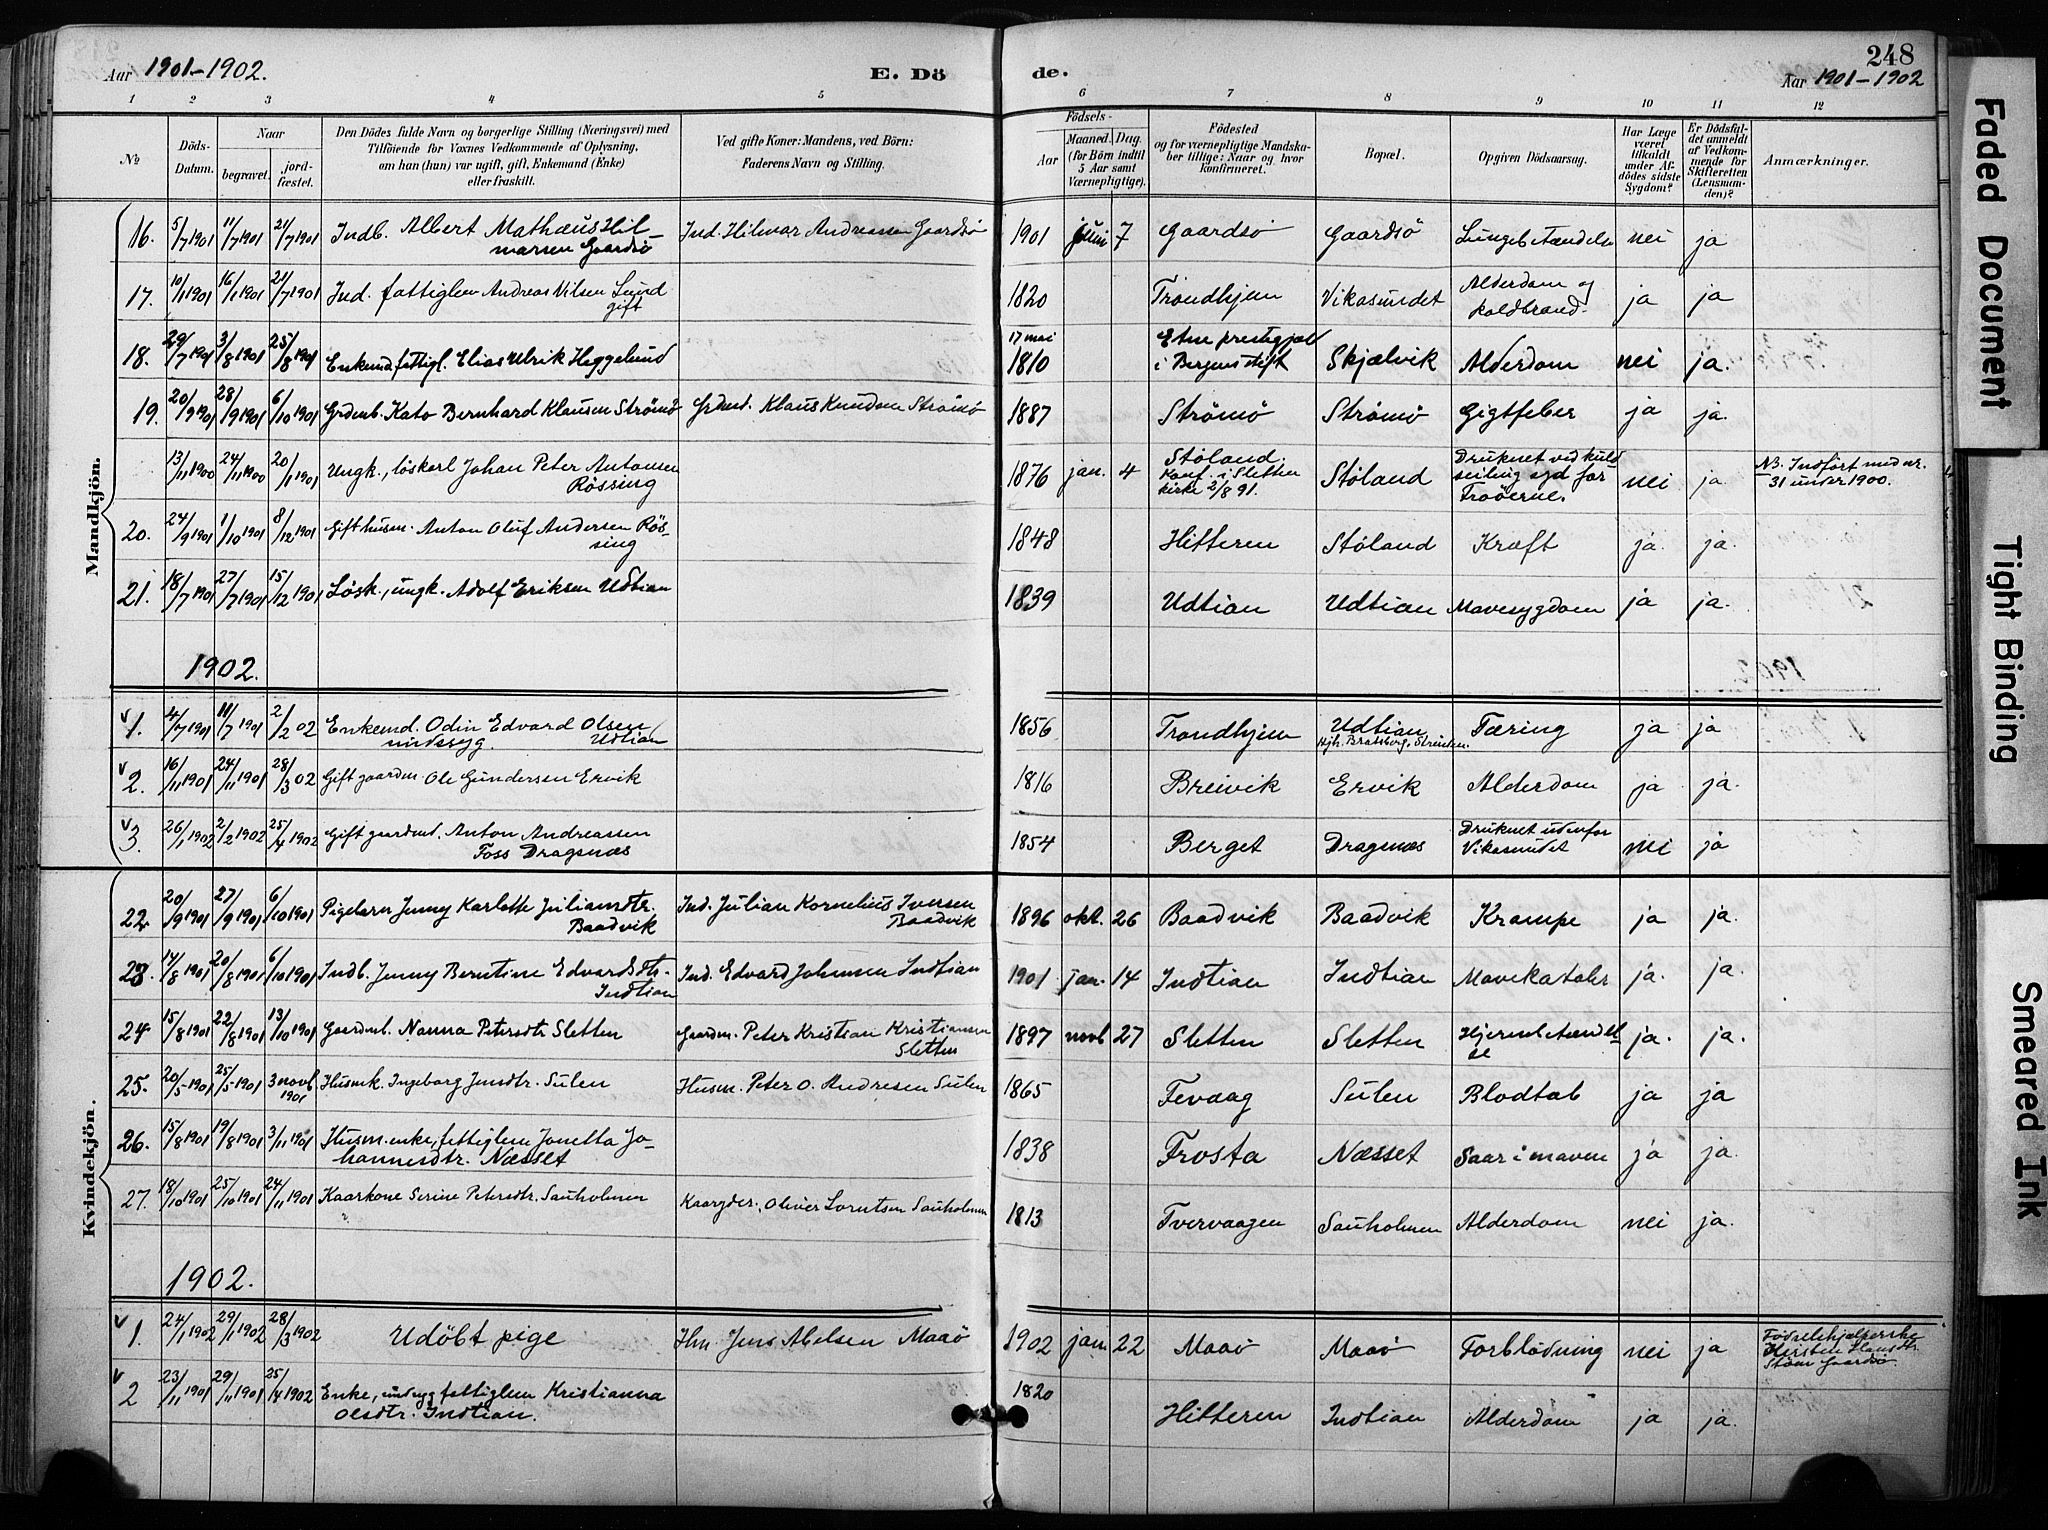 Aar 1901-1902.
E. Dö
de.
248
Aar 1901-1902
1 2 3 4 5 6 7 8 9 10 11 12
№
Döds-Datum.
Naar
begravet.
jord-fæstet.
Den Dödes fulde Navn og borgerlige Stilling (Næringsvei) med
Tilföiende for Voxnes Vedkommende af Oplysning,
om han (hun) var ugift, gift, Enkemand (Enke)
eller fraskilt.
Ved gifte Koner: Mandens, ved Börn:
Faderens Navn og Stilling.
Födsels-
Aar
Maaned. Dag.
(for Börn indtil
5 Aar samt
Værnepligtige).
Födested
og for værnepligtige Mandska-
ber tillige: Naar og hvor
konfirmeret.
Bopæl.
Opgiven Dödsaarsag.
Har Læge
været
tilkaldt
under Af-
dödes sidste
Sygdom?
Er Dödsfal-
det anmeldt
af Vedkom-
mende for
Skifteretten
(Lensman-
den)?
Anmærkninger.
Mandkjön.
16. 5/7 1901 11/7 1901 21/7 1901 Indb. Albert Mathæus Hil-
marsen Gaardsö Ind. Hilmar Andreassen Gaardsö 1901 juni 7 Gaardsö Gaardsö Lungebetændelse nei ja
17. 10/1 1901 16/1 1901 21/7 1901 Ind. fattiglem Andreas Nilsen Lund
gift 1820 Trondhjem Vikasundet Alderdom og
koldbrand. ja ja
18. 29/7 1901 3/8 1901 25/8 1901 Enkemd. fattigl. Elias Ulrik Heggelund 17 mai
1810 Etne prestegjæld
i Bergens stift Skjælvik Alderdom nei ja.
19. 20/9 1901 28/9 1901 6/10 1901 Grdmb. Kato Bernhard Klausen Strömö Grdmd. Klaus Knudsen Strömö 1887 Strömö Strömö Gigtfeber ja ja.
13/11 1900 24/11 1900 20/1 1901 Ungk., löskarl Johan Peter Antonsen
Rössing 1876 jan. 4 Stöland.
Konf. i Sletten
kirke 2/8 91. Stöland Druknet ved kuld
seiling syd for
Froöerne. nei ja NB. Indfört med nr.
31 under 1900.
20. 24/9 1901 1/10 1901 8/12 1901 Gift husm. Anton Oluf Andersen Rös-
sing 1848 Hitteren Stöland Kræft ja. ja.
21. 18/7 1901 27/7 1901 15/12 1901 Lösk., ungk. Adolf Eriksen Udtian 1839 Udtian Udtian Mavesygdom ja ja.
1902.
1. 4/7 1901 11/7 1901 2/2 02 Enkemd. Odin Edvard Olsen
Udtian 1856 Trondhjem Udtian
Hjh. Bratsberg, Strinden. Tæring ja ja
2. 16/11 1901 24/11 1901 28/3 02 Gift gaardm. Ole Gundersen Ervik 1816 Breivik Ervik Alderdom ja ja.
3. 26/1 1902 2/2 1902 25/4 1902 Gift gaardmd. Anton Andreassen
Foss Dragsnæs 1854 Berget Dragsnæs Druknet udenfor
Vikasundet nei ja
Kvindekjön.
22. 20/9 1901 27/9 1901 6/10 1901 Pigebarn Jenny Karlotte Juliansdtr.
Baadvik Ind. Julian Kornelius Iversen
Baadvik 1896 okt. 26 Baadvik Baadvik Krampe ja ja.
23. 14/8 1901 20/8 1901 6/10 1901 Indb. Jenny Berntine Edvardsdtr.
Indtian Ind. Edvard Johnsen Indtian 1901 jan. 14 Indtian Indtian Mavekatahr ja. ja.
24. 15/8 1901 22/8 1901 13/10 1901 Gaardmb. Nanna Petersdtr Sletten Gaardm. Peter Kristian Kristiansen
Sletten 1897 novb 27 Sletten Sletten Hjernebetændel-
se ja. ja.
25. 20/5 1901 25/5 1901 3 novb. 1901 Husmk. Ingeborg Jensdtr. Sulen Husm. Peter O. Andresen Sulen 1865 Fevaag Sulen Blodtab ja ja
26. 15/8 1901 19/8 1901 3/11 1901 Husm.enke, fattiglem Jonetta Jo-
hannesdtr. Næsset 1838 Frosta Næsset Saar i maven ja ja.
27. 18/10 1901 25/10 1901 24/11 1901 Kaarkone Serine Petersdtr. Sauholmen Kaargder. Oliver Lorntsen Sauholmen 1813 Tvervaagen Sauholmen Alderdom nei ja.
1902.
1. 24/1 1902 29/1 1902 28/3 1902 Udöbt pige Hm Jens Abelsen Maaö 1902 jan. 22 Maaö Maaö Forblödning nei ja Födselshjælperske
Kirsten Hansdtr
Ström Gaardsö
2 23/11 1901 29/11 1901 25/4 1902 Enke, fattiglem Kristianna
Olsdtr. Indtian. 1820
Hitteren Indtian Alderdom ja ja.
Faded Document
Tight Binding
Smeared Ink